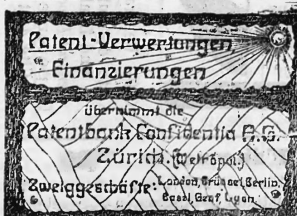 Patent-Verwertungen
Finanzierungen
übernimmt die
Patentbank Confidentia A.G.
Zürich. (Metropol.)
Zweiggeschäfte: London, Brüssel, Berlin,
Basel, Genf, Lyon.